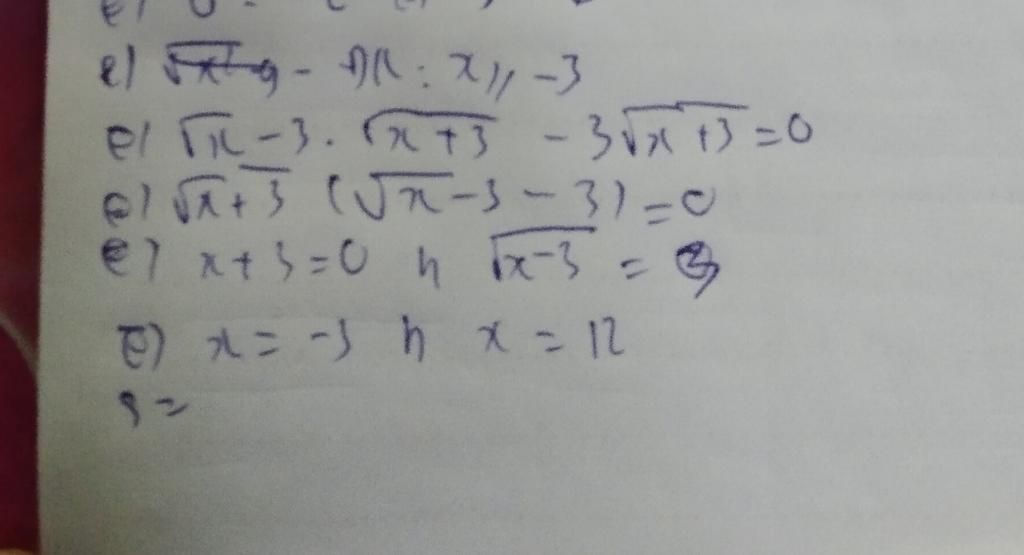 e) - ĐK: x ≥ -3
e) √x-3 . √x+3 - 3√x+3 = 0
e) √x+3 (√x-3 - 3) = 0
e) x+3=0 h √x-3 = 3
e) x = -3 h x = 12